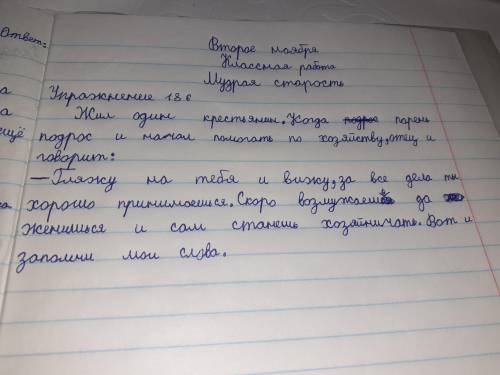 Ответ:
Второе ноября
Классная работа
Мудрая старость
Упражнение 186
а
Жил один крестьянин. Когда парень
а
ещё
подрос и начал помогать по хозяйству, отец и
говорит:
— Гляжу на тебя и вижу, за все дела ты
хорошо принимаешся. Скоро возмужаеш да
женишься и сам станешь хозяйничать. Вот и
запомни мои слова.